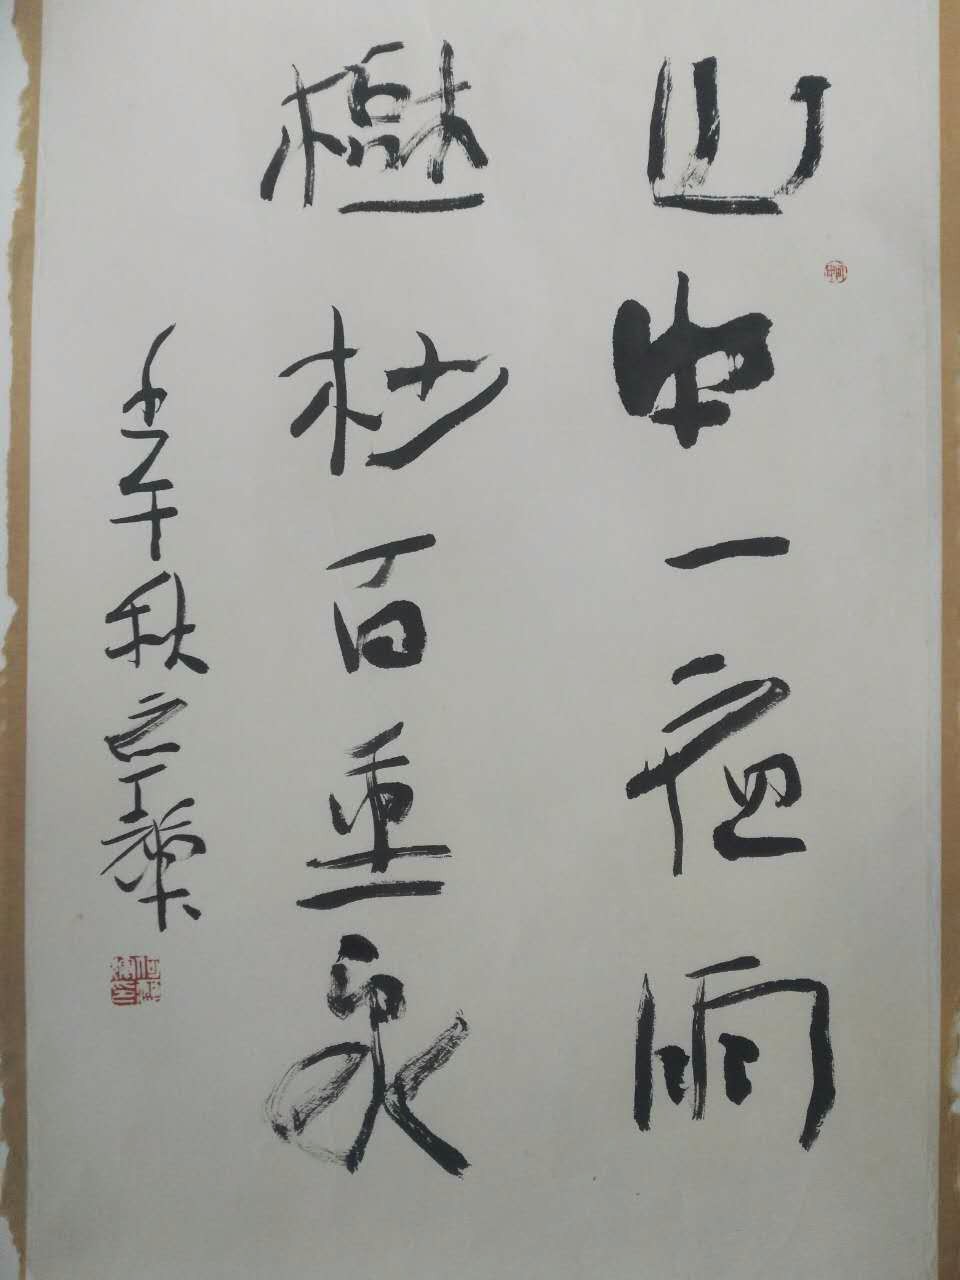 山中一夜雨
樹杪百重泉
壬午秋